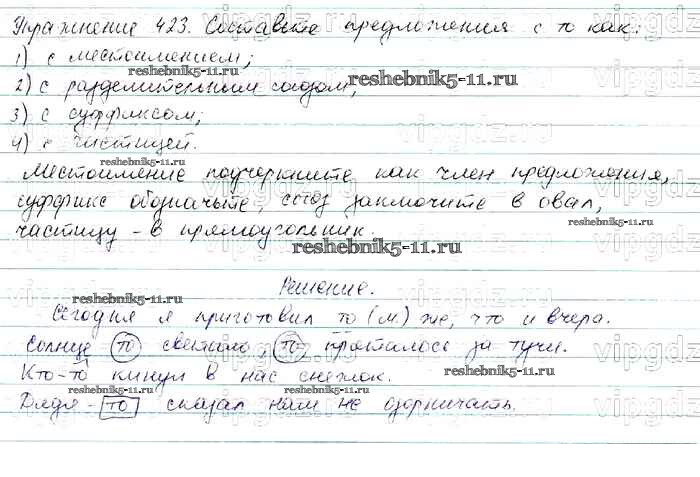 Упражнение 423. Составьте предложения с то как:
1) с местоимением;
2) с разделительным союзом;
3) с суффиксом;
4) с частицей.
Местоимение подчеркните как член предложения,
суффикс обозначьте, союз заключите в овал,
частицу - в прямоугольник.
Решение.
Сегодня я приготовил то (м) же, что и вчера.
Солнце то светило, то пряталось за тучи.
Кто-то кинул в нас снежок.
Дядя-то сказал нам не озорничать.
reshebnik5-11.ru
reshebnik5-11.ru
reshebnik5-11.ru
reshebnik5-11.ru
reshebnik5-11.ru
reshebnik5-11.ru
reshebnik5-11.ru
vipgdz.ru